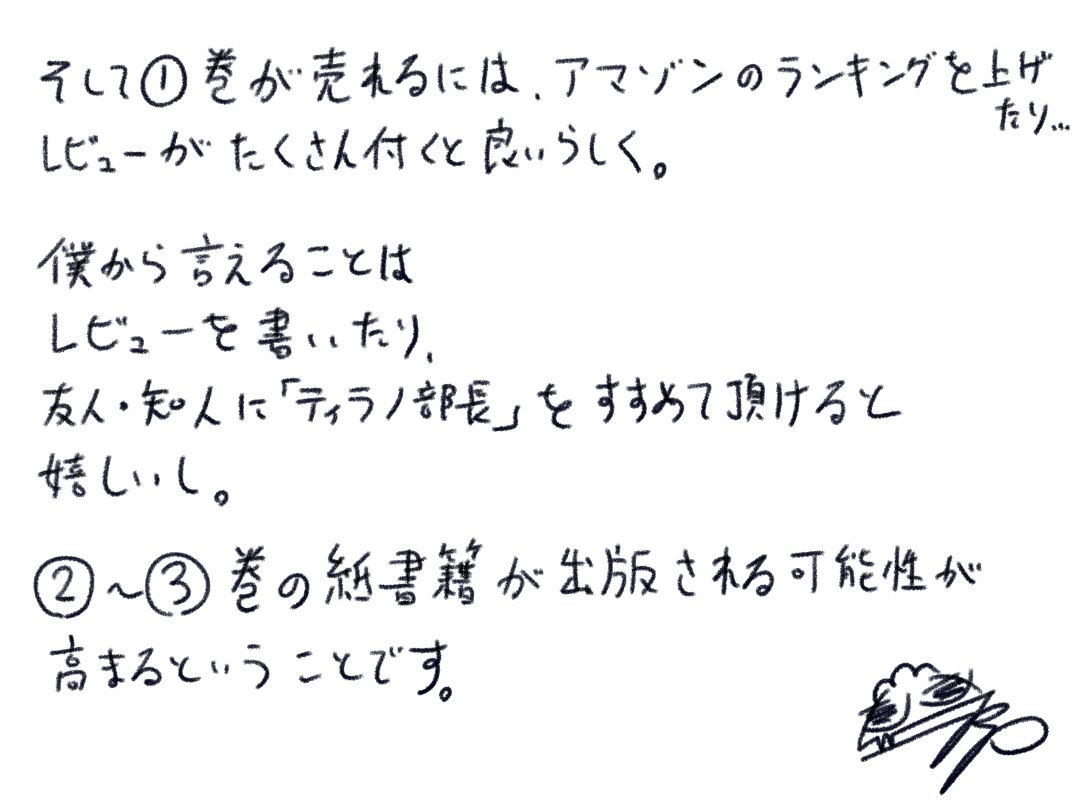 そして①巻が売れるには、アマゾンのランキングを上げ
たり…
レビューがたくさん付くと良いらしく。
僕から言えることは
レビューを書いたり、
友人・知人に「ティラノ部長」をすすめて頂けると
嬉しいし。
②〜③巻の紙書籍が出版される可能性が
高まるということです。